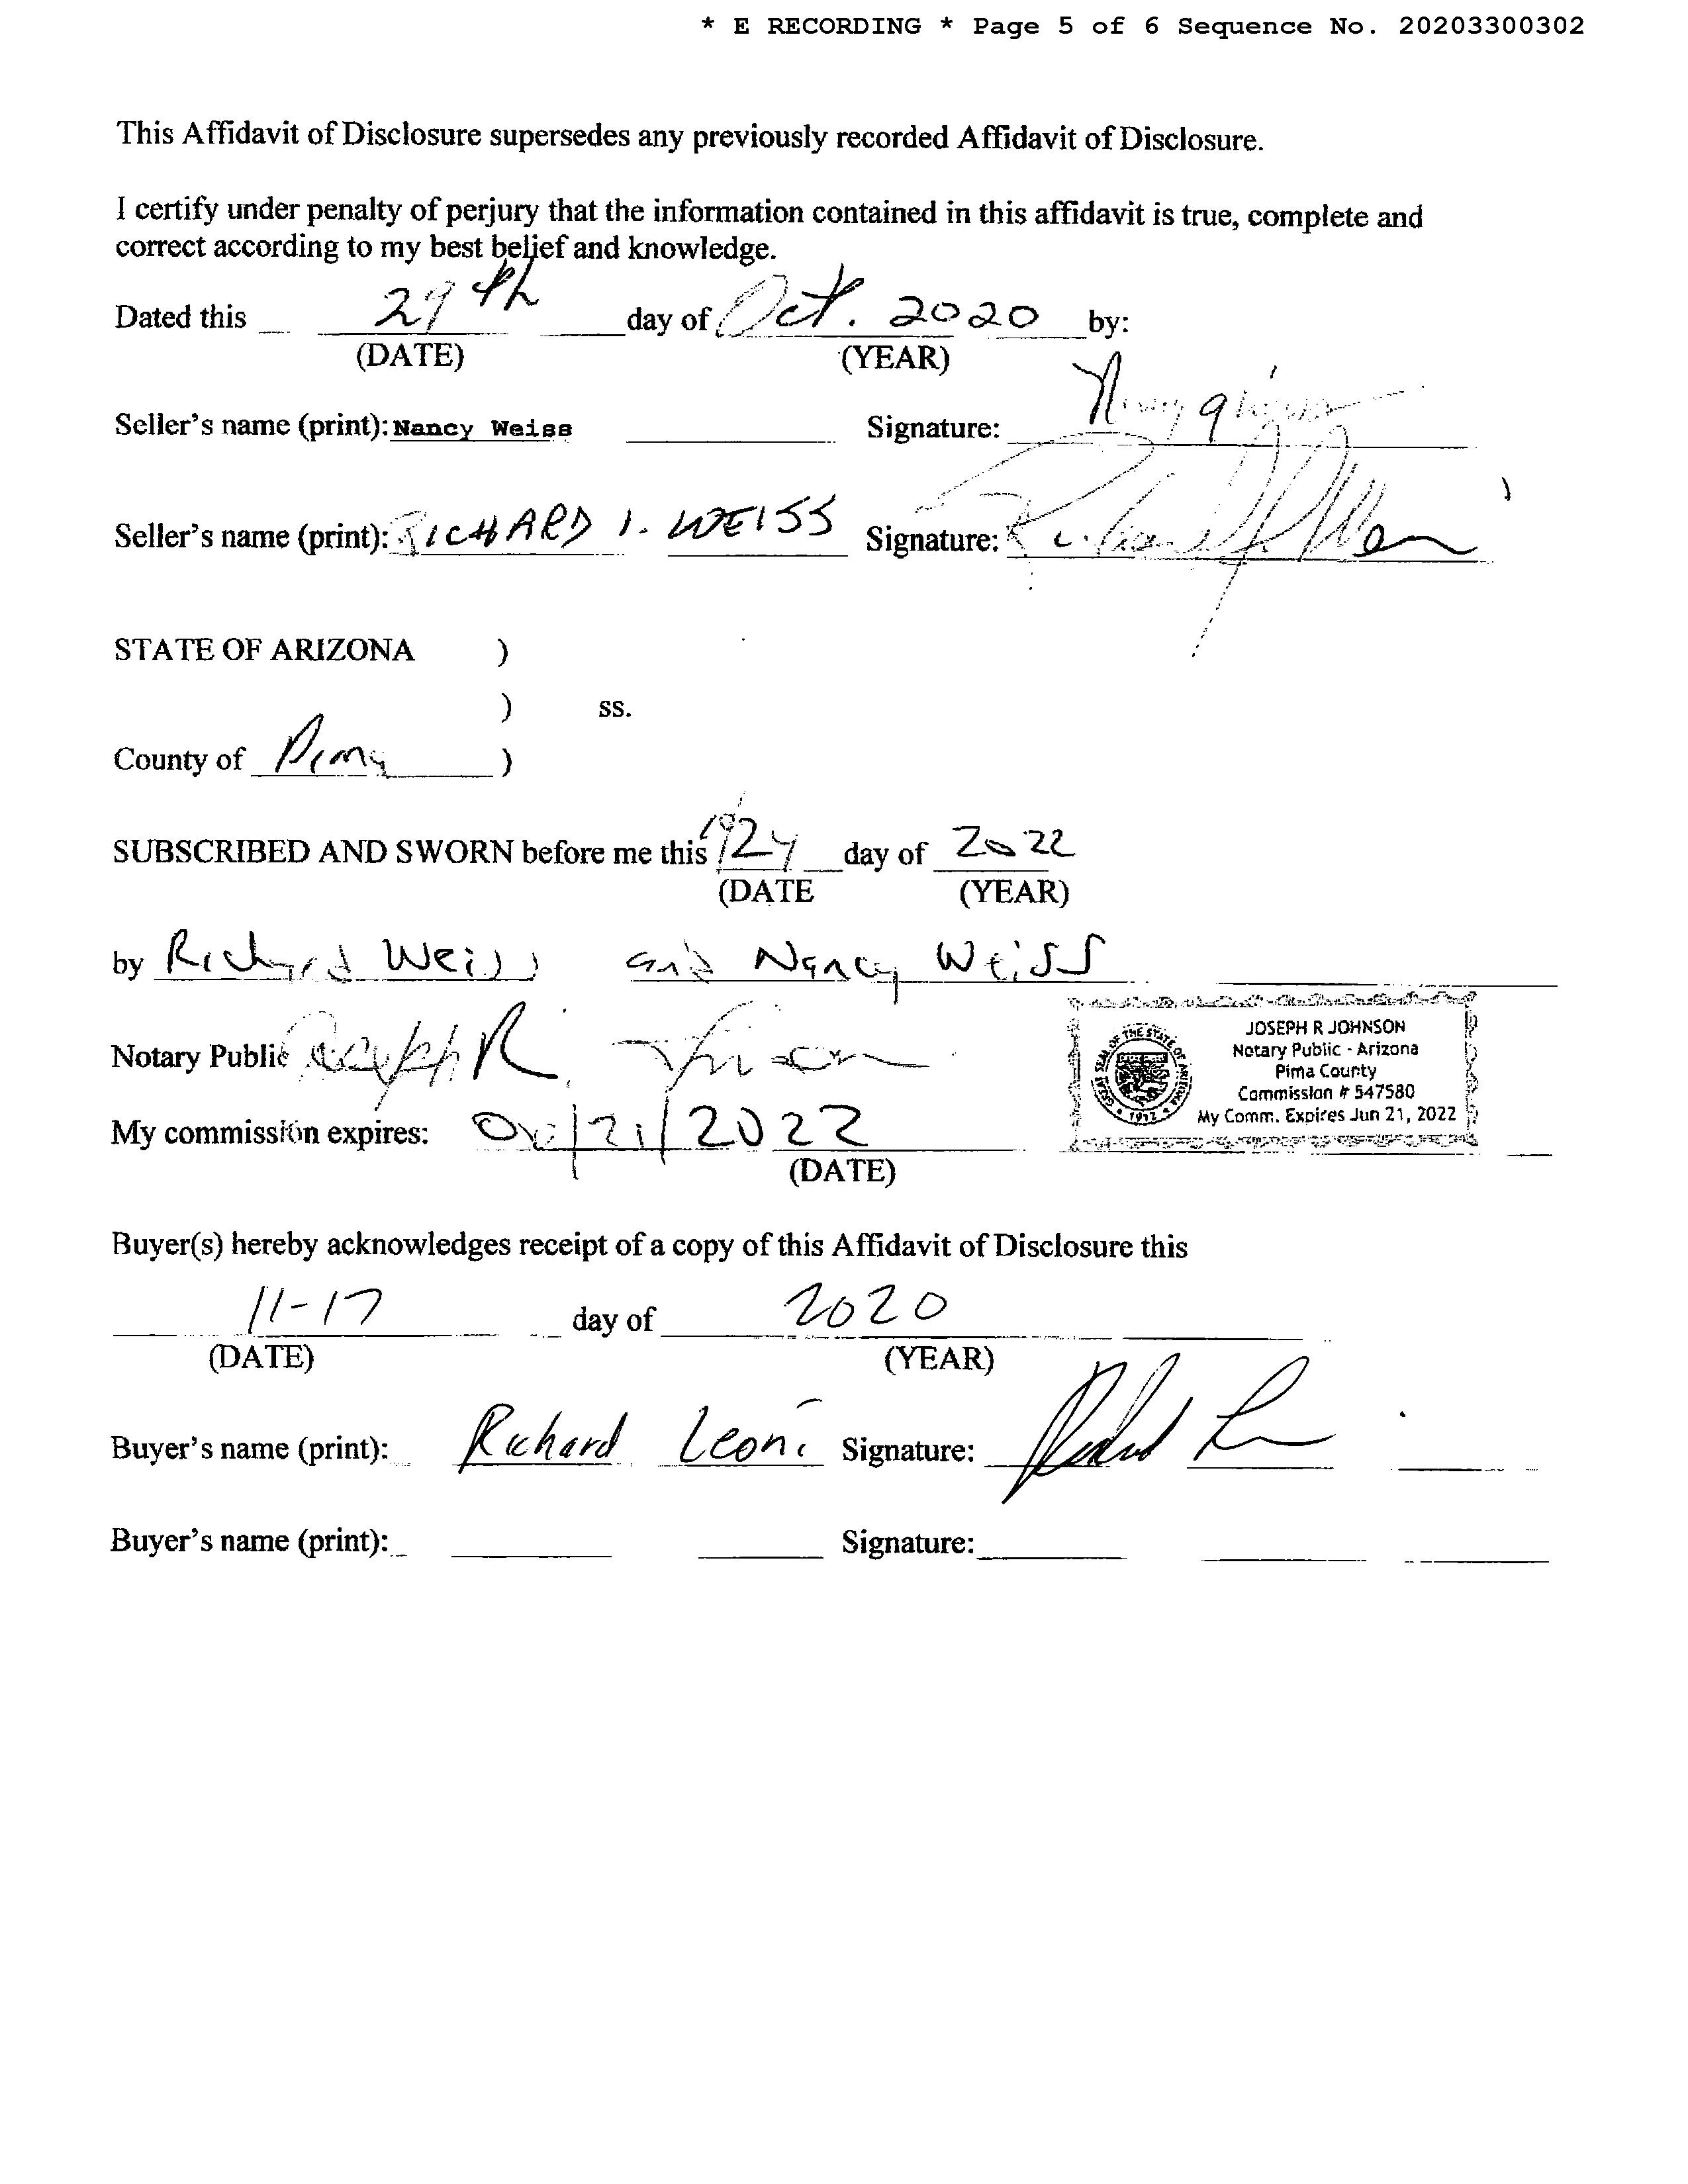 * E RECORDING * Page 5 of 6 Sequence No. 20203300302
This Affidavit of Disclosure supersedes any previously recorded Affidavit of Disclosure.
I certify under penalty of perjury that the information contained in this affidavit is true, complete and
correct according to my best belief and knowledge.
Dated this 29th day of Oct. 2020 by:
(DATE) (YEAR)
Seller's name (print): Nancy Weiss Signature:
Seller's name (print): RICHARD I. WEISS Signature:
STATE OF ARIZONA )
) ss.
County of Pima )
SUBSCRIBED AND SWORN before me this day of 2022
(DATE (YEAR)
by Richard Weiss and Nancy Weiss
Notary Public Joseph R. Johnson
My commission expires: 06/21/2022
(DATE)
JOSEPH R JOHNSON
Notary Public - Arizona
Pima County
Commission # 547580
My Comm. Expires Jun 21, 2022
GREAT SEAL OF THE STATE OF ARIZONA
1912
Buyer(s) hereby acknowledges receipt of a copy of this Affidavit of Disclosure this
11-17 day of 2020
(DATE) (YEAR)
Buyer's name (print): Richard Leoni Signature:
Buyer's name (print): Signature: